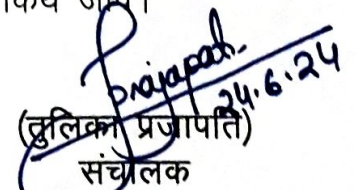 Prajapati
24.6.24
(तुलिका प्रजापति)
संचालक